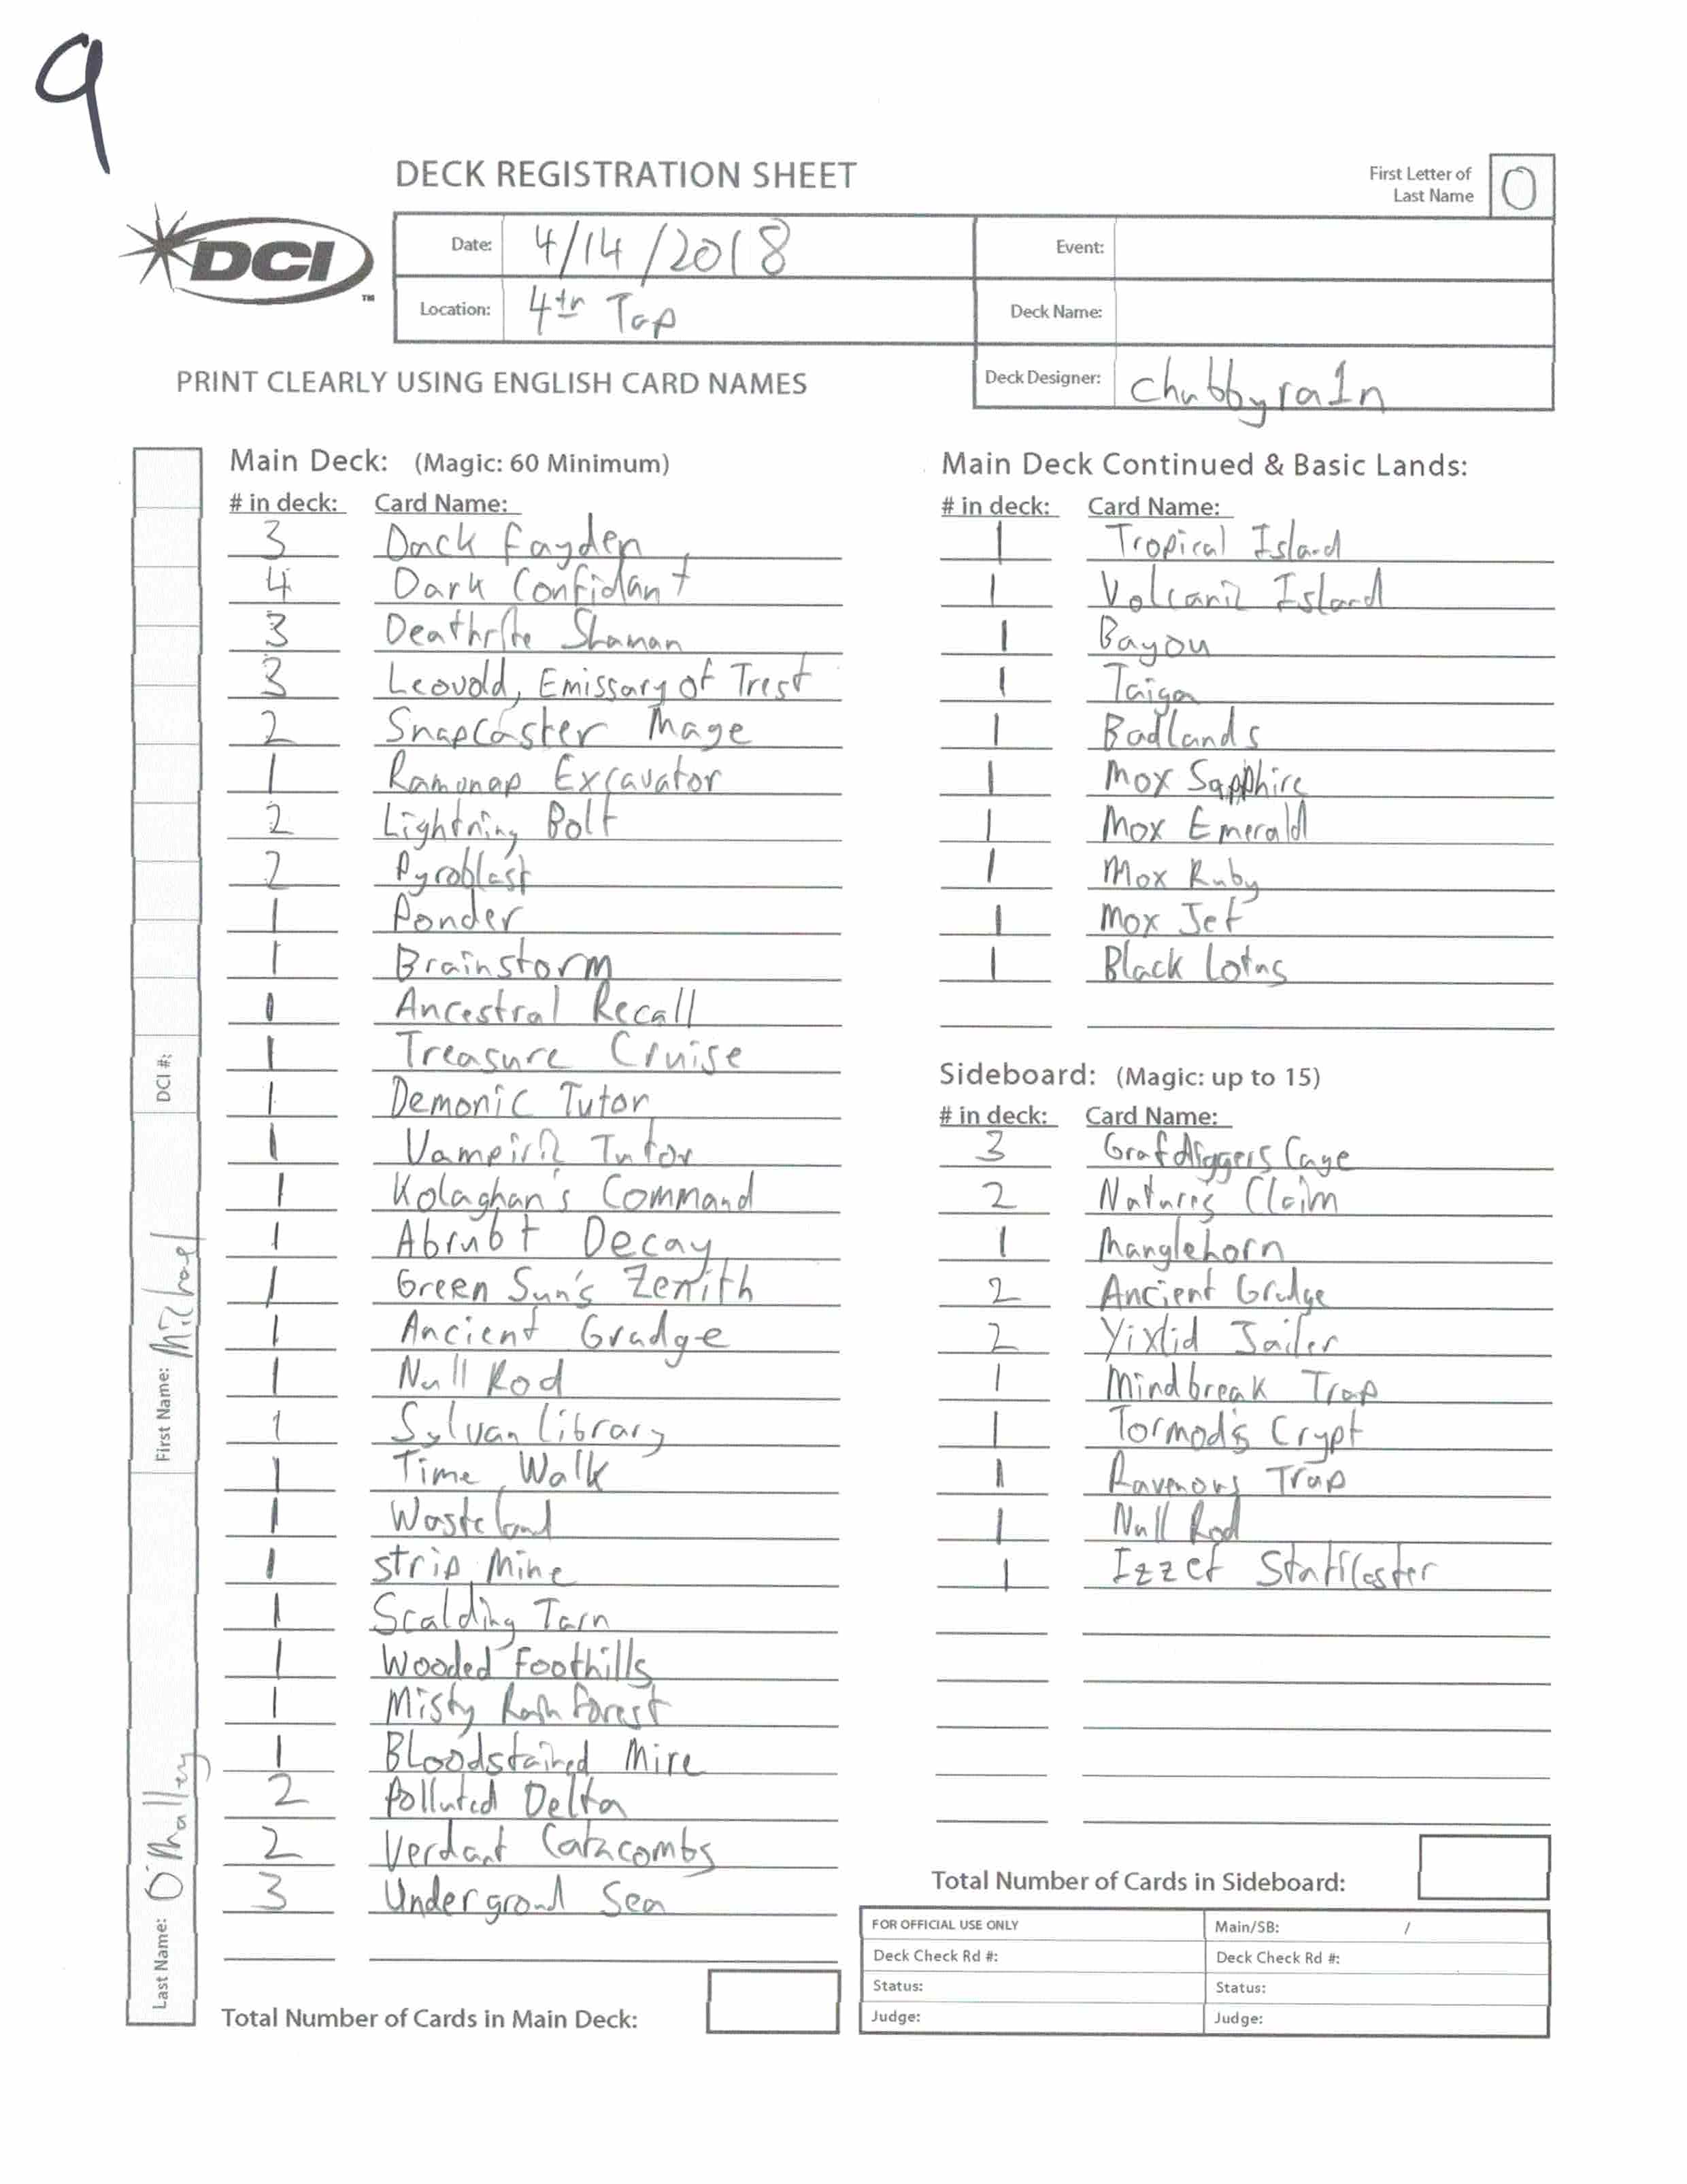 9
DECK REGISTRATION SHEET
First Letter of
Last Name
O
DCI
TM
Date: 4/14/2018
Event:
Location: 4th Tap
Deck Name:
PRINT CLEARLY USING ENGLISH CARD NAMES
Deck Designer: Chubbyra1n
Last Name: O'Malley
First Name: Michael
DCI #:
Main Deck: (Magic: 60 Minimum)
# in deck: Card Name:
3 Dack Fayden
4 Dark Confidant
3 Deathrite Shaman
3 Leovold, Emissary of Trest
2 Snapcaster Mage
1 Ramunap Excavator
2 Lightning Bolt
2 Pyroblast
1 Ponder
1 Brainstorm
1 Ancestral Recall
1 Treasure Cruise
1 Demonic Tutor
1 Vampiric Tutor
1 Kolaghan's Command
1 Abrubt Decay
1 Green Sun's Zenith
1 Ancient Grudge
1 Null Rod
1 Sylvan Library
1 Time Walk
1 Wasteland
1 Strip Mine
1 Scalding Tarn
1 Wooded Foothills
1 Misty Rainforest
1 Bloodstained Mire
2 Polluted Delta
2 Verdant Catacombs
3 Underground Sea
Total Number of Cards in Main Deck:
Main Deck Continued & Basic Lands:
# in deck: Card Name:
1 Tropical Island
1 Volcanic Island
1 Bayou
1 Taiga
1 Badlands
1 Mox Sapphire
1 Mox Emerald
1 Mox Ruby
1 Mox Jet
1 Black Lotus
Sideboard: (Magic: up to 15)
# in deck: Card Name:
3 Grafdiggers Cage
2 Natures Claim
1 Manglehorn
2 Ancient Grudge
2 Yixlid Jailer
1 Mindbreak Trap
1 Tormod's Crypt
1 Ravenous Trap
1 Null Rod
1 Izzet Staticaster
Total Number of Cards in Sideboard:
FOR OFFICIAL USE ONLY
Main/SB: /
Deck Check Rd #:
Deck Check Rd #:
Status:
Status:
Judge:
Judge: